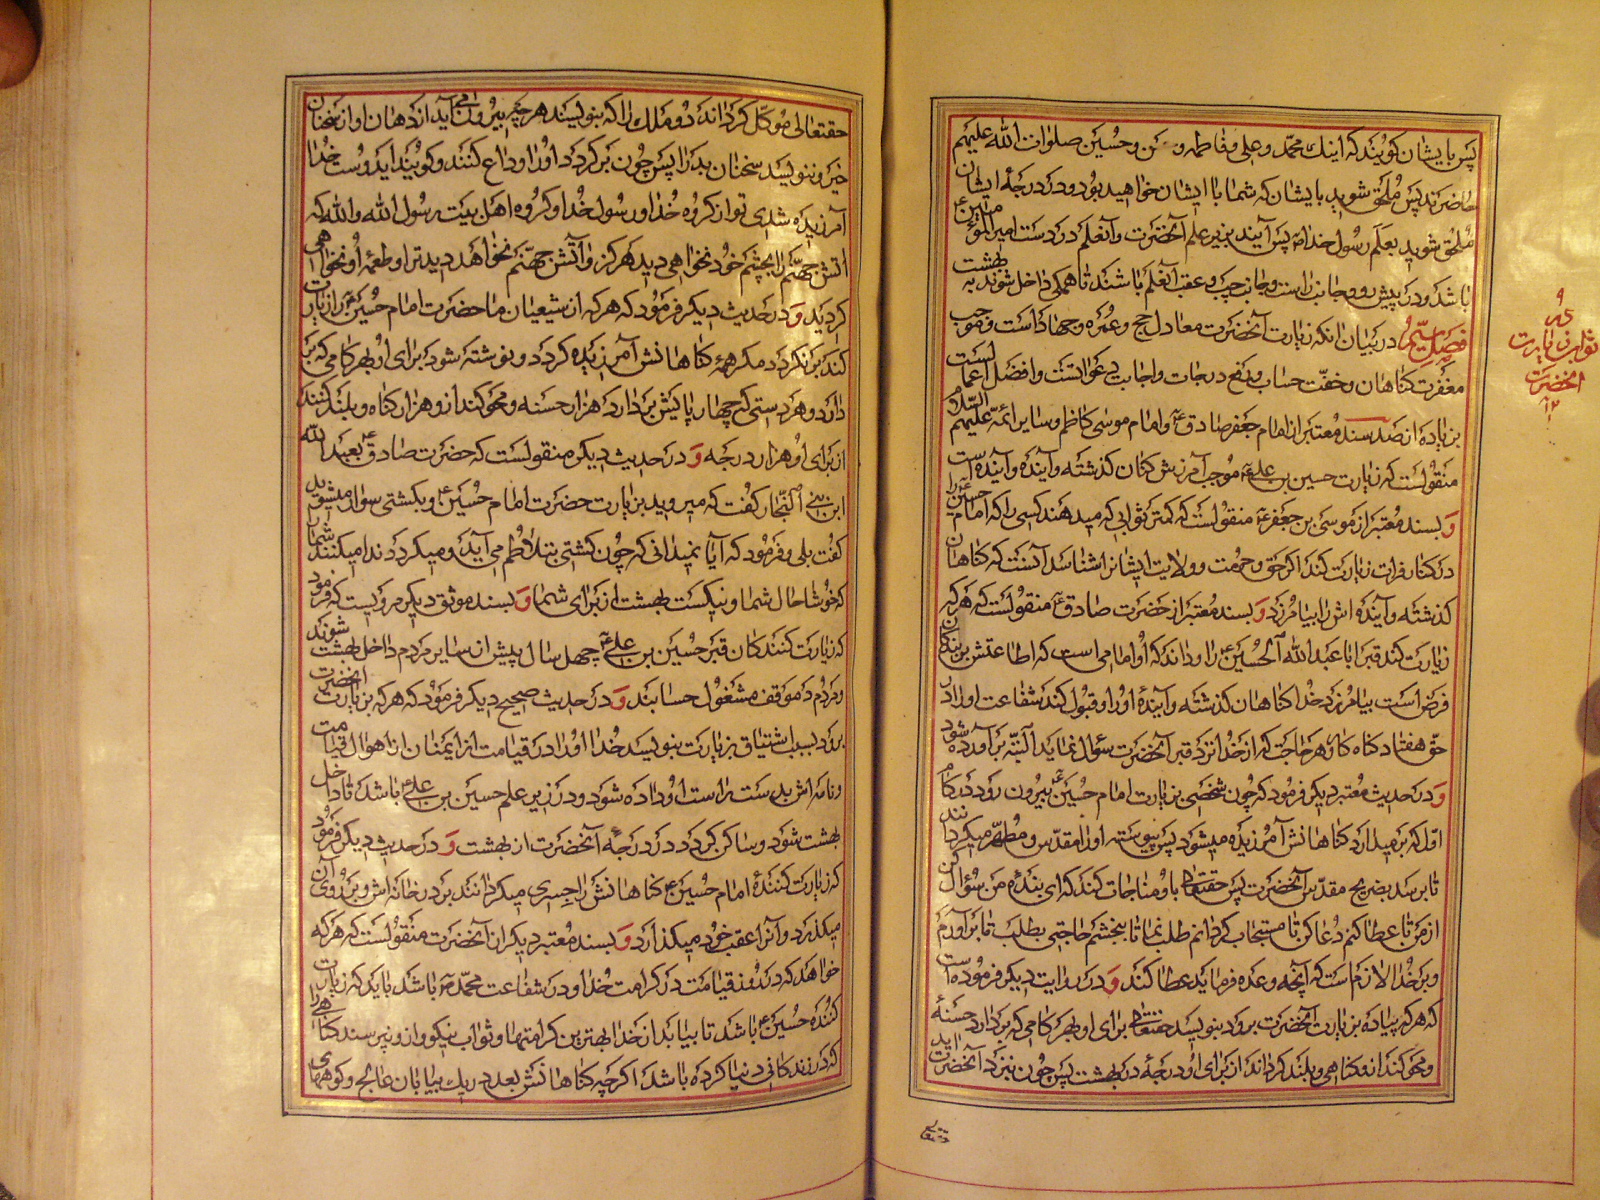 پس بایشان کویند که اینک محمد و علی و فاطمه و حسن و حسین صلوات الله علیهم
حاضرند پس ملحق شوید بایشان که شما با ایشان خواهید بود در درجۀ ایشان
ملحق شوید بعلم رسول خدا ص پس آیند بزیر علم آنحضرت و آنعلم در دست امیر المؤمنین ع
باشد و در پیش رو و جانب راست و جانب چپ و عقب آنعلم باشند تا همکی داخل شوند به بهشت
فصل سیم در بیان آنکه زیارت آنحضرت معادل حج و عمره و جهاد است و موجب
مغفرت کناهان و خفت حساب و رفع درجات و اجابت دعواتست و افضل اعمالست
بزیاده از صد سند معتبر از امام جعفر صادق ع و امام موسی کاظم و سایر ائمه علیهم السلام
منقولست که زیارت حسین بن علی ع موجب آمرزش کناهان کذشته و آینده است
و بسند معتبر از موسی بن جعفر ع منقولست که کمتر ثوابی که میدهند کسی را که امام حسین ع را
در کنار فرات زیارت کند اکر حق و حرمت و ولایت ایشانرا شناسد آنست که کناهان
کذشته و آینده اش را بیامرزد و بسند معتبر از حضرت صادق ع منقولست که هر که
زیارت کند قبر ابا عبد الله الحسین ع را و داند که او امامی است که اطاعتش بر بندکان
فرض است بیامرزد خدا کناهان کذشته و آیندۀ او را و قبول کند شفاعت او را در
حق هفتاد کناه کار و هر حاجت که از خدا نزد قبر آنحضرت سؤال نماید البته برآورده شود
و در حدیث معتبر دیکر فرمود که چون شخصی بزیارت امام حسین ع بیرون رود در کام
اول که برمیدارد کناهانش آمرزیده میشود پس پیوسته او را مقدس و مطهر میکردانند
تا برسد بضریح مقدس آنحضرت پس حقتعالی با او مناجات کند که ای بندۀ من سؤال کن
از من تا عطا کنم دعا کن تا مستجاب کردانم طلب نما تا ببخشم حاجتی بطلب تا برآورم
و بر خدا لازم است که آنچه وعده فرماید عطا کند و در روایت دیکر فرموده است
که هر که پیاده بزیارت آنحضرت برود بنویسد حقتعالی برای او بهر کامی که بردارد حسنۀ
و محو کند از او کناهی و بلند کرداند از برای او درجۀ در بهشت پس چون بنزد آنحضرت آید
حقتعالی
ثواب زیارت
آنحضرت
حقتعالی موکل کرداند دو ملک را که بنویسند هر چه بیرون می آید از دهان او از سخنان
خیر و ننویسد سخنان بد را پس چون برکردد او را وداع کنند و کویند ای دوست خدا
آمرزیده شدی تو از کروه خدا و رسول خدا و کروه اهل بیت رسول الله و الله که
آتش جهنم را بچشم خود نخواهی دید هرکز و آتش جهنم نخواهد دید ترا و طعمۀ او نخواهی
کردید و در حدیث دیکر فرمود که هر که از شیعیان ما حضرت امام حسین ع را زیارت
کند برنکردد مکر همۀ کناهانش آمرزیده کردد و نوشته شود برای او بهر کامی که بر
دارد و هر دستی که چهار پایش بردارد هزار حسنه و محو کند از او هزار کناه و بلند کنند
از برای او هزار درجه و در حدیث دیکر منقولست که حضرت صادق ع بعبد الله
ابن النجار کفت که میروید بزیارت حضرت امام حسین ع و بکشتی سوار میشوید
کفت بلی فرمود که آیا نمیدانی که چون کشتی بتلاطم می آید و میکردد ندا میکنند شما را
که خوشا حال شما و نیکست بهشت از برای شما و بسند موثق دیکر مرویست که فرمود
که زیارت کنندکان قبر حسین بن علی ع چهل سال پیش از سایر مردم داخل بهشت شوند
و مردم در موقف مشغول حسابند و در حدیث صحیح دیکر فرمود که هر که بزیارت آنحضرت
برود بسبب اشتیاق بزیارت بنویسد خدا او را در قیامت از ایمنان از اهوال قیامت
و نامه اش بدست راست او داده شود و در زیر علم حسین بن علی ع باشد تا داخل
بهشت شود و ساکن کردد در درجۀ آنحضرت از بهشت و در حدیث دیکر فرمود
که زیارت کنندۀ امام حسین ع کناهانش را جسری میکردانند بر در خانه اش و بر روی آن
میکذرد و آنرا عقب خود میکذارد و بسند معتبر دیکر از آنحضرت منقولست که هر که
خواهد که در روز قیامت در کرامت خدا و در شفاعت محمد ص باشد باید که زیارت
کنندۀ حسین ع باشد تا بیابد از خدا بهترین کرامتها و ثواب نیکو و از او نپرسند کناهی را
که در زندکانی دنیا کرده باشد اکر چه کناهانش بعدد ریک بیابان عالج و کوههای